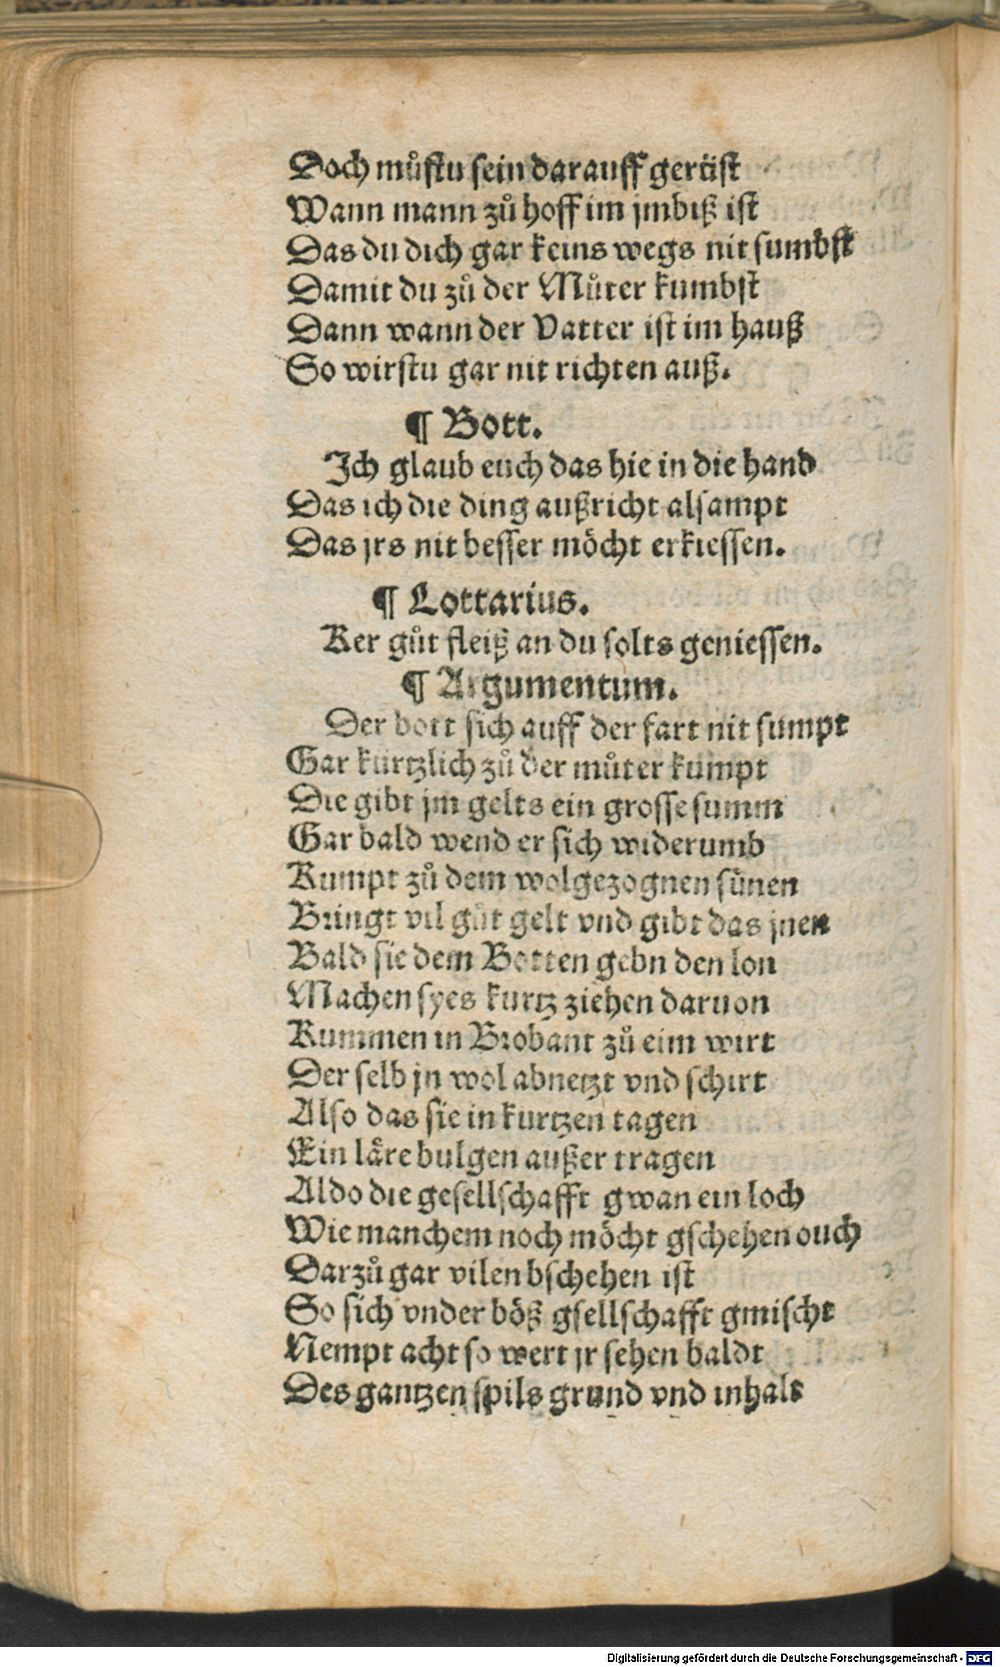 Doch můstu sein darauff gerüst
Wann mann zů hoff im jmbiß ist
Das du dich gar keins wegs nit sumbst
Damit du zů der Můter kumbst
Dann wann der Vatter ist im hauß
So wirstu gar nit richten auß.
¶ Bott.
Ich glaub euch das hie in die hand
Das ich die ding außricht alsampt
Das jrs nit besser möcht erkiessen.
¶ Lottarius.
Ker gůt fleiß an du solts geniessen.
¶ Argumentum.
Der bott sich auff der fart nit sumpt
Gar kürtzlich zů der můter kumpt
Die gibt jm gelts ein grosse summ
Gar bald wend er sich widerumb
Kumpt zů dem wolgezognen sünen
Bringt vil gůt gelt vnd gibt das jnen
Bald sie dem Botten gebn den lon
Machen syes kurtz ziehen daruon
Kummen in Brobant zů eim wirt
Der selb jn wol abnetzt vnd schirt
Also das sie in kurtzen tagen
Ein läre bulgen außer tragen
Aldo die gesellschafft gwan ein loch
Wie manchem noch möcht gschehen ouch
Darzů gar vilen bschehen ist
So sich vnder böß gsellschafft gmischt
Nempt acht so wert jr sehen baldt
Des gantzen spils grund vnd inhalt
Digitalisierung gefördert durch die Deutsche Forschungsgemeinschaft - DFG